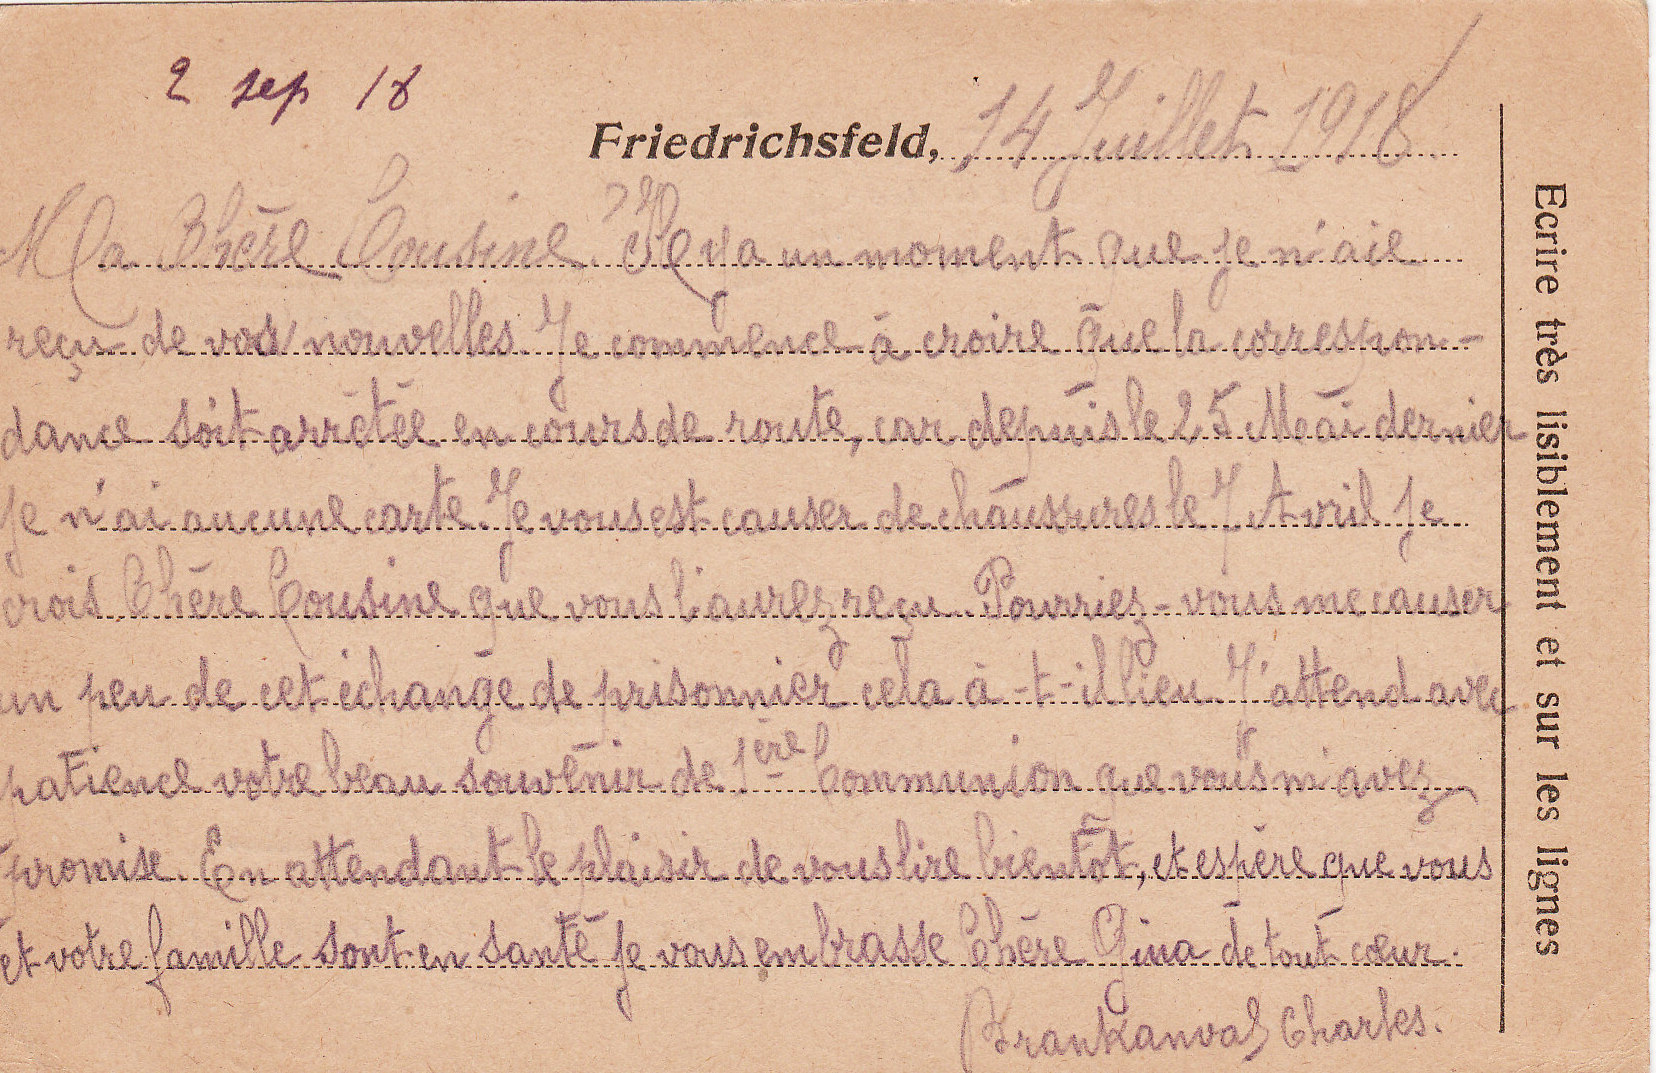 2 sep 18
Friedrichsfeld, 14 Juillet 1918
Ma Chère Cousine. Il y a un moment que je n'aie
reçu de vos nouvelles. Je commence à croire que la correspon-
dance soit arrêtée en cours de route, car depuis le 25 Mai dernier
je n'ai aucune carte. Je vous est causer de chaussures le 7 Avril je
crois Chère Cousine que vous l'aurez reçu. Pourriez-vous me causer
un peu de cet échange de prisonnier cela à-t-il lieu. J'attend avec
patience votre beau souvenir de 1ère Communion que vous m'avez
promise. En attendant le plaisir de vous lire bientôt, et espère que vous
et votre famille sont en santé je vous embrasse Chère Gina de tout cœur.
Charles.
Ecrire très lisiblement et sur les lignes